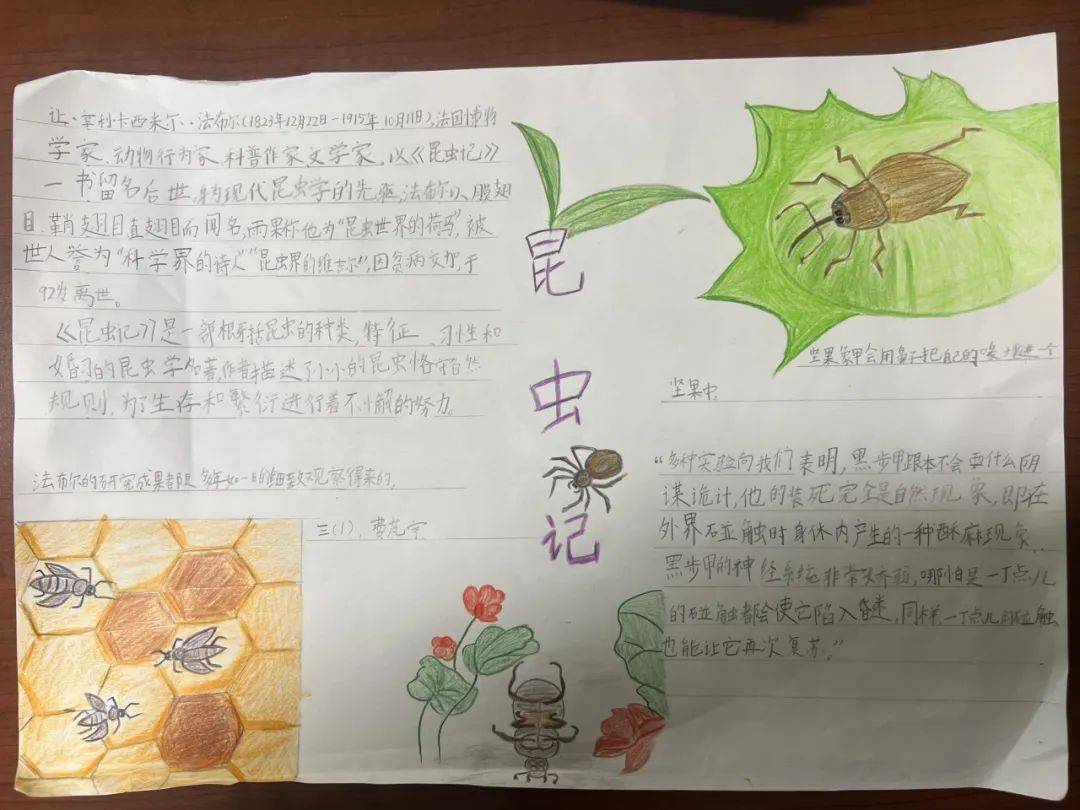 让·亨利卡西米尔·法布尔(1823年12月22日-1915年10月11日),法国博物
学家、动物行为家、科普作家文学家。以《昆虫记》
一书留名后世,为现代昆虫学的先驱,法布尔以膜翅
目、鞘翅目直翅目而闻名,雨果称他为“昆虫世界的荷马”,被
世人誉为“科学界的诗人”“昆虫界的维吉尔”,因贫病交加,于
92岁离世。
《昆虫记》是一部概括昆虫的种类、特征、习性和
婚习的昆虫学名著,作者描述了小小的昆虫恪守自然
规则,为了生存和繁衍进行着不懈的努力。
法布尔的研究成果都是多年如一日的细致观察得来的。
三(1),费
昆
虫
记
坚果象甲会用鼻子把自己的进一个
坚果中。
“多种实验向我们表明,黑步甲跟本不会耍什么阴
谋诡计,他的装死完全是自然现象,即在
外界碰触时身体内产生的一种酥麻现象、
黑步甲的神经系统非常娇弱,哪怕是一丁点儿
的碰触都会使它陷入昏迷,同样一丁点儿的碰触
也能让它再次复苏。”